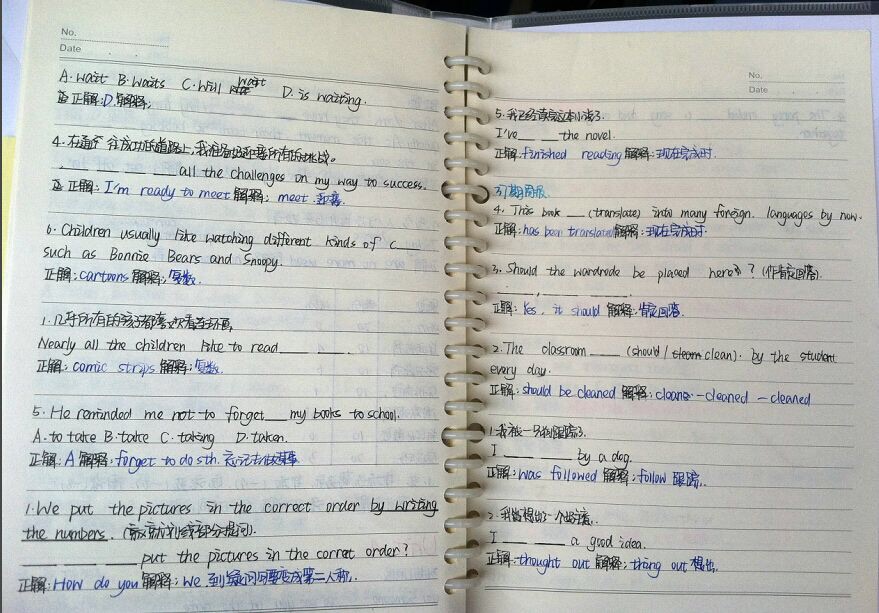 No.
Date
A. wait B. waits C. will wait D. is waiting.
正解: D 解释:
4. 在通往成功的道路上,我准备好迎接所有的挑战。
___ ___ ___ ___ all the challenges on my way to success.
正解: I'm ready to meet 解释: meet 迎接
6. Children usually like watching different kinds of c___
such as Bonnie Bears and Snoopy.
正解: cartoons 解释: 复数.
1. 几乎所有的孩子都喜欢看连环画,
Nearly all the children like to read ___ ___.
正解: comic strips 解释: 复数.
5. He reminded me not to forget ___ my books to school.
A. to take B. take C. taking D. taken.
正解: A 解释: forget to do sth. 忘记去做某事
1. We put the pictures in the correct order by writing
the numbers. (就划线部分提问).
___ ___ ___ put the pictures in the correct order?
正解: How do you 解释: we 到疑问句要变成第二人称.
No.
Date
5. 我已经读完这本小说了.
I've ___ ___ the novel.
正解: finished reading 解释: 现在完成时.
周报
4. This book ___ (translate) into many foreign languages by now.
正解: has been translated 解释: 现在完成时
3. Should the wardrobe be placed here? (作肯定回答).
___, ___ ___.
正解: Yes, it should 解释: 肯定回答.
2. The classroom ___ (should / clean). by the student
every day.
正解: should be cleaned 解释: clean - cleaned - cleaned
1. 我被一只狗跟踪了.
I ___ ___ by a dog.
正解: was followed 解释: follow 跟踪.
2. 我想出了一个好主意.
I ___ ___ a good idea.
正解: thought out 解释: thing out 想出.